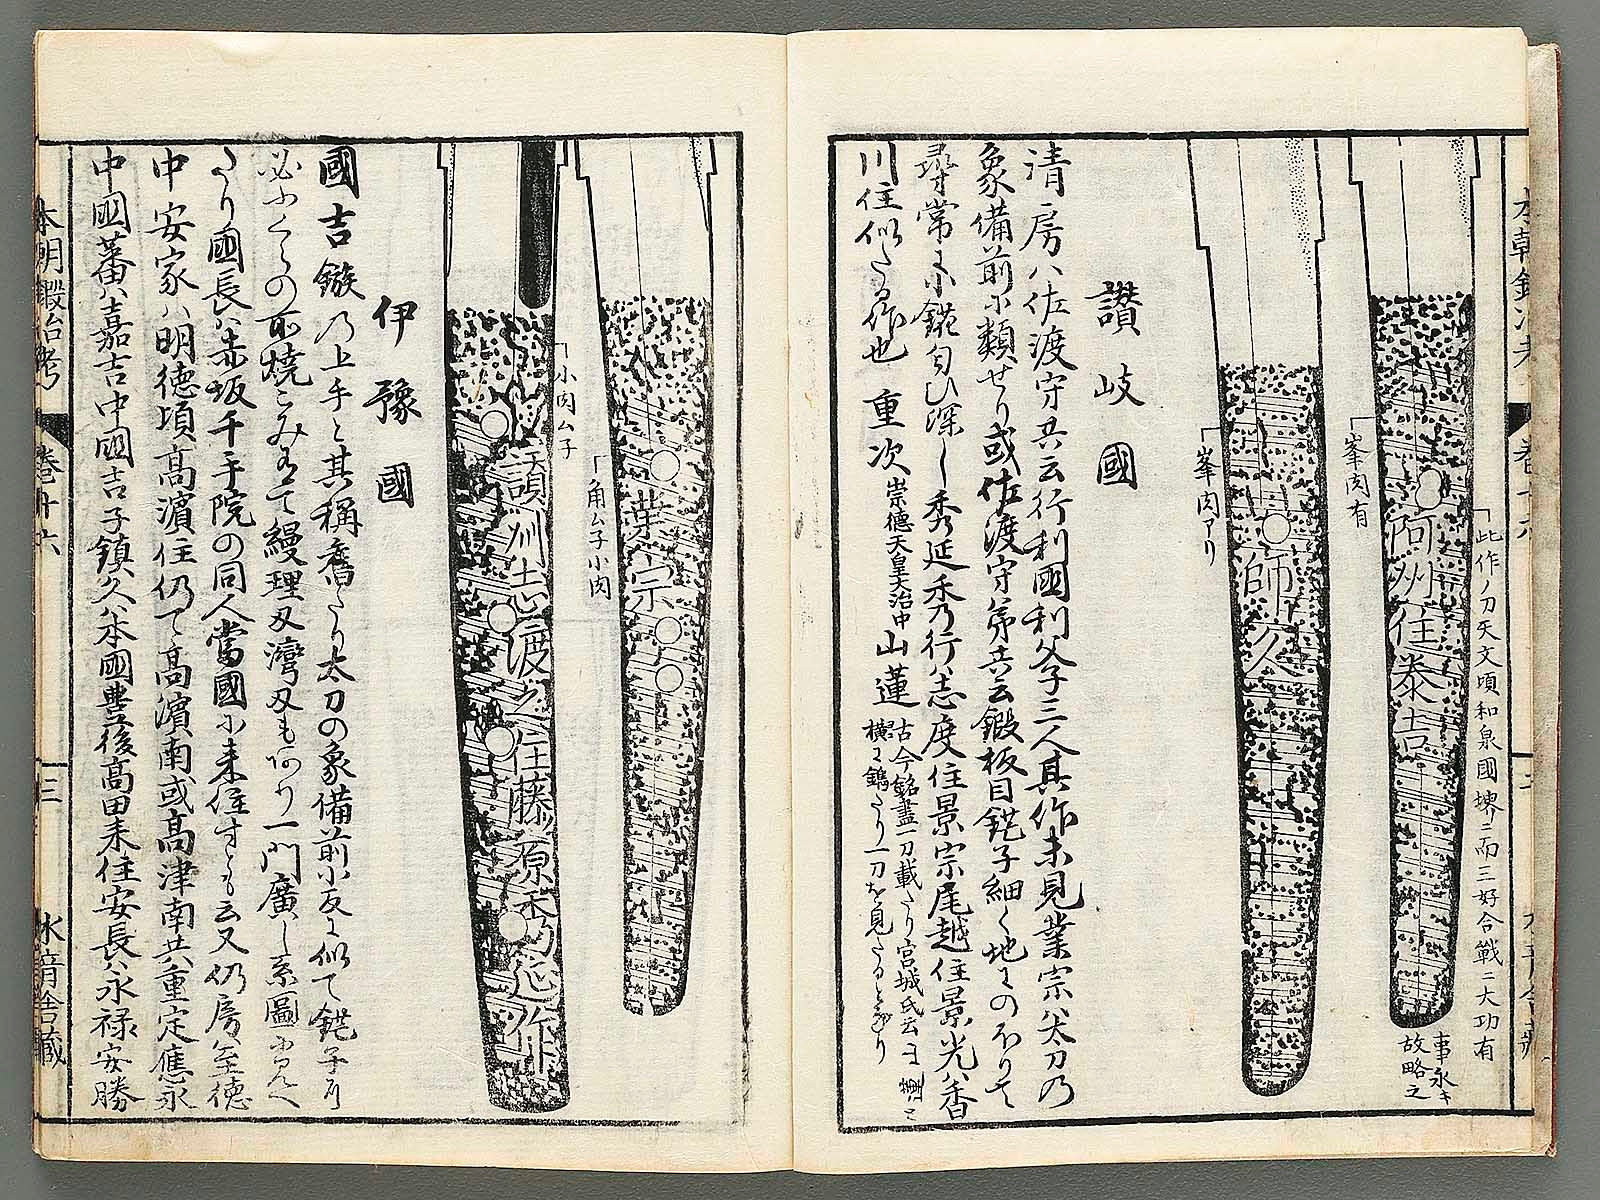 本朝鍛冶考
巻十六
此作ノ刀天文頃和泉國堺ニ而三好合戰ニ大功有
事永キ
故略之
阿州住泰吉
峯肉有
師久
峯肉アリ
讃岐國
清房ハ佐渡守共云行利國利父子三人其作未見業宗ハ太刀乃
象備前ニ類せり或佐渡守弟共云鍛板目錵子細く地よのありて
尋常よ小錵匂ひ深し秀延禾乃行ハ志度住景宗尾越住景光ハ香
川住似たる作也 重次
崇德天皇大治中
山蓮
古今銘盡一刀載たり宮城氏云
横ニ鑢たり一刀を見たる
業宗
角ムネ小肉
讃州志渡之住藤原禾乃延作
小肉ムネ
伊豫國
國吉鏃乃上手と其稱香たり太刀の象備前小反よ似て錵子有
必ふくらの所焼こみ有て縵理刄灣刄も有り一門廣し系圖
たり國長ハ赤坂千手院の同人當國ニ来住すとも云又仍房至德
中安家ハ明德頃髙濱住仍て髙濱南或髙津南共重定應永
中國蕃ハ嘉吉中國吉子鎮久ハ本國豊後髙田来住安長ハ永禄安勝
本朝鍛冶考
巻十六
三
水音舎藏